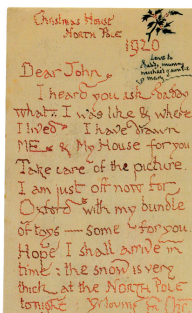 Christmas House
NORTH POLE
1920
Love to
daddy, mummy
michael & auntie
& mary
Dear John,
I heard you ask daddy
what I was like & where
I lived. I have drawn
ME & My House for you
Take care of the picture.
I am just off now for
Oxford with my bundle
of toys — some for you.
Hope I shall arrive in
time: the snow is very
thick at the NORTH POLE
tonight. Yr loving Fr. Chr.